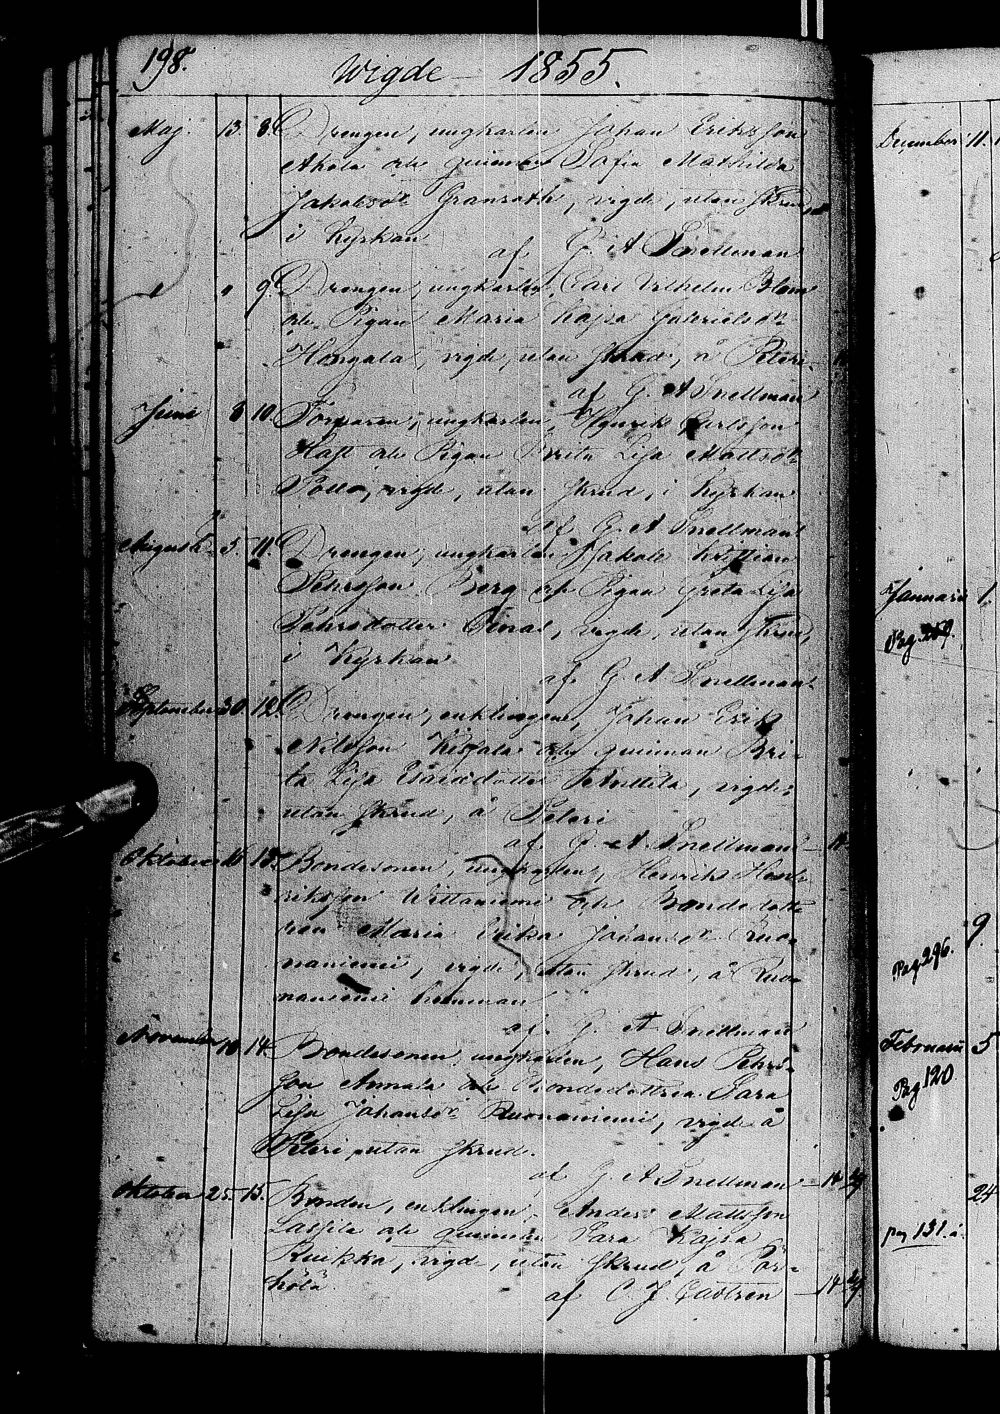 198.
Wigde — 1855.
Maj. 13. 8. Drengen, ungkarlen Johan Eriksson
Ahola och quinnan Sofia Mathilda
Jakobsdr Granroth, vigde, utan skrud,
i Kyrkan
af G. A Snellman
" " 9. Drengen, ungkarlen, Carl Vilhelm Blom
och Pigan Maria Kajsa Gabrielsdr
Hongala, vigde, utan skrud, å Peteri
af G. A Snellman
Juni 8 10. ungkarlen, Henrik Carlsson
Hast och Pigan Brita Lisa Mattsdr
vigde, utan skrud, i Kyrkan
af G. A Snellman
Augusti 5. 11. Drengen, ungkarlen Jakob Kristian
Pehrsson Berg och Pigan Greta Lisa
Pehrsdotter vigde, utan skrud,
i Kyrkan
af G. A Snellman
September 30. 12. Drengen, enklingen, Johan Erik
Nilsson och quinnan Bri-
ta Lisa Anttila, vigde,
utan skrud, å Peteri
af G. A. Snellman
Oktober 13. Bondesonen, ungkarlen, Henrik Hen-
riksson Wittaniemi och Bondedott-
ren Maria Erika Johansdr Ruo-
naniemi, vigde, utan skrud, å Ruo-
naniemi hemman
af G. A Snellman
November 18 14. Bondesonen ungkarlen, Hans Pehrs-
son Annala och Bondedottren Sara
Lisa Johansdr Ruonaniemi, vigde å
Peteri utan skrud.
af G. A Snellman
Oktober 25. 15. Bonden, enklingen, Anders Mattsson
Lassila och quinnan Sara Kajsa
Ruikka, vigde, utan skrud, å Pör-
hölä
af C. J.
December 11.
Januari 1.
Pag. 259.
9
Pag 296.
Februarii 5
Pag 120
24
pag 131.